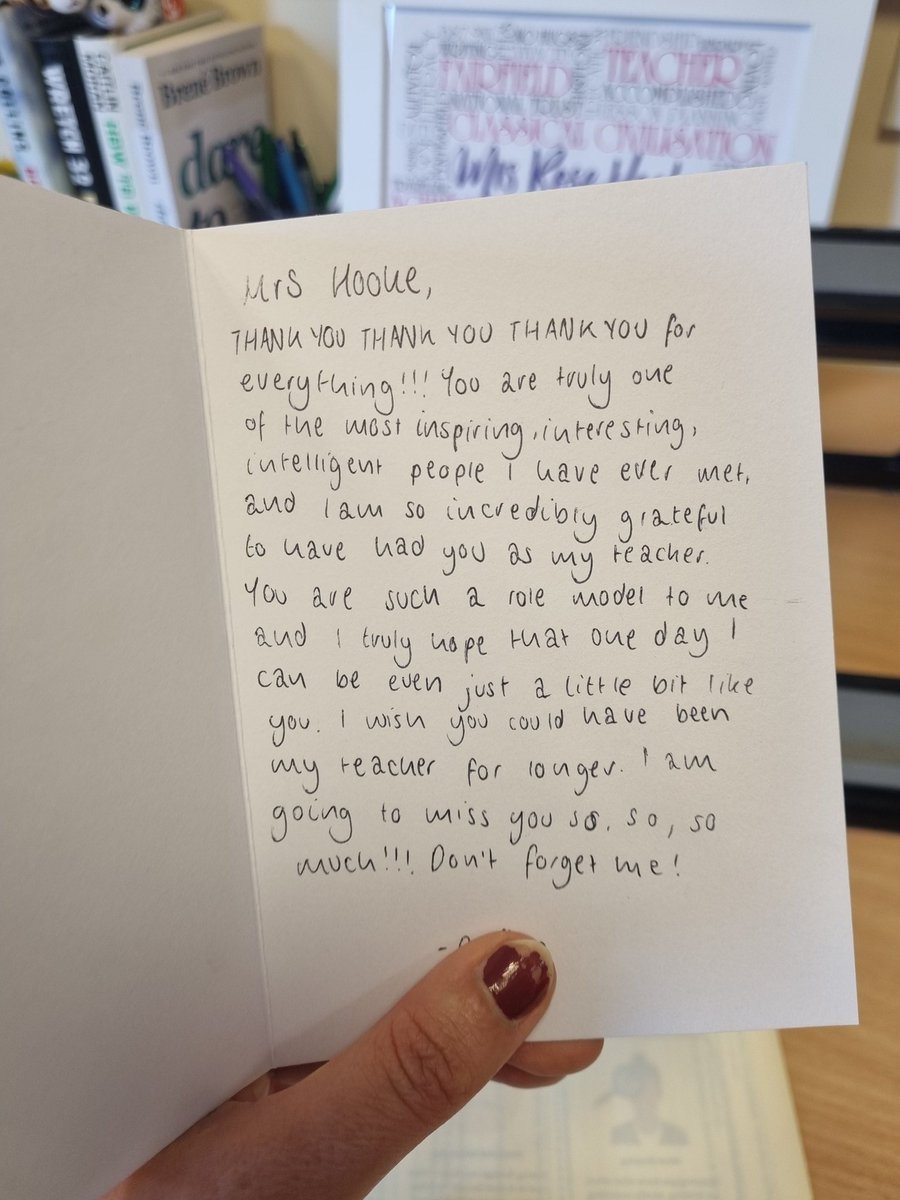 Brené Brown
dare
to
FAIRFIELD
TEACHER
NATIONAL TRUST
ACCOMPLISHED
CLASSICAL CIVILISATION
Mrs Rose
Mrs Hooke,
THANK YOU THANK YOU THANK YOU for
everything!!! You are truly one
of the most inspiring, interesting,
intelligent people I have ever met,
and I am so incredibly grateful
to have had you as my teacher.
You are such a role model to me
and I truly hope that one day I
can be even just a little bit like
you. I wish you could have been
my teacher for longer. I am
going to miss you so, so, so
much!!! Don't forget me!